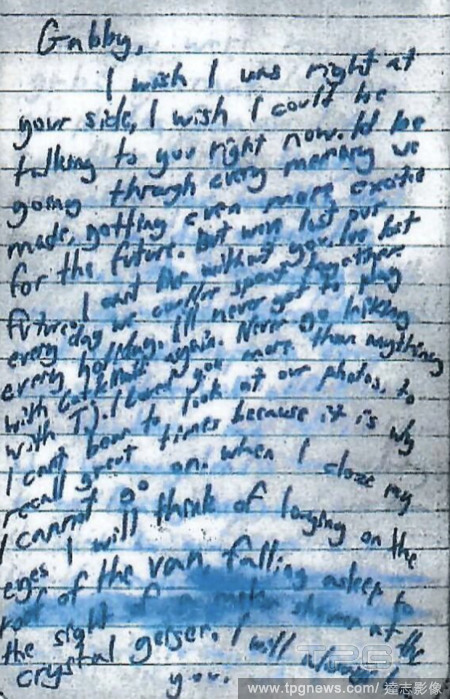 Gabby,
I wish I was right at
your side, I wish I could be
talking to you right now. Id be
going through every memory we
made, getting even more excited
for the future. But weve lost our
future. I cant live without you. Ive lost
every day we couldve spent together,
every holiday. I'll never get to play
with again. Never go hiking
with TJ. I loved you more than anything
I cant bear to look at our photos, to
recall great times because it is why
I cannot go on. When I close my
eyes I will think of laughing on the
roof of the van, falling asleep to
the sight of a at the
crystal geiser. I will always
you.
TPG
www.tpgnews.com/ 達志影像